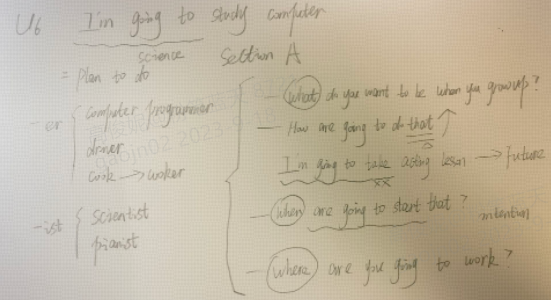 U6 I'm going to study computer
science Section A
= plan to do
-er
computer programmer
driver
cook → woker
-ist
scientist
pianist
— What do you want to be when you grow up?
— How are going to do that
I'm going to take acting leson → Future
— When are going to start that? intention
— where are you going to work?